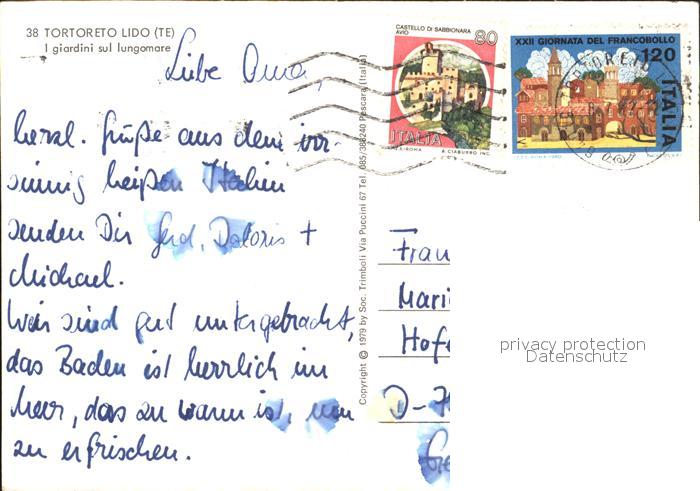 38 TORTORETO LIDO (TE)
I giardini sul lungomare
Liebe Oma,
herzl. Grüße aus dem irr-
sinnig heißen Italien
senden Dir Gerd, Doloris +
Michael.
Wir sind gut untergebracht,
das Baden ist herrlich im
Meer, das zu warm ist, um
zu erfrischen.
Copyright © 1979 by Soc. Trimboli Via Puccini 67 Tel. 085/388240 Pescara (Italia)
CASTELLO DI SABBIONARA
AVIO
80
ITALIA
I.P.Z.S.-ROMA
A. CIABURRO INC.
XXII GIORNATA DEL FRANCOBOLLO
120
ITALIA
I.P.Z.S.-ROMA-1980
Frau
Mari
Hofe
D-7
privacy protection
Datenschutz